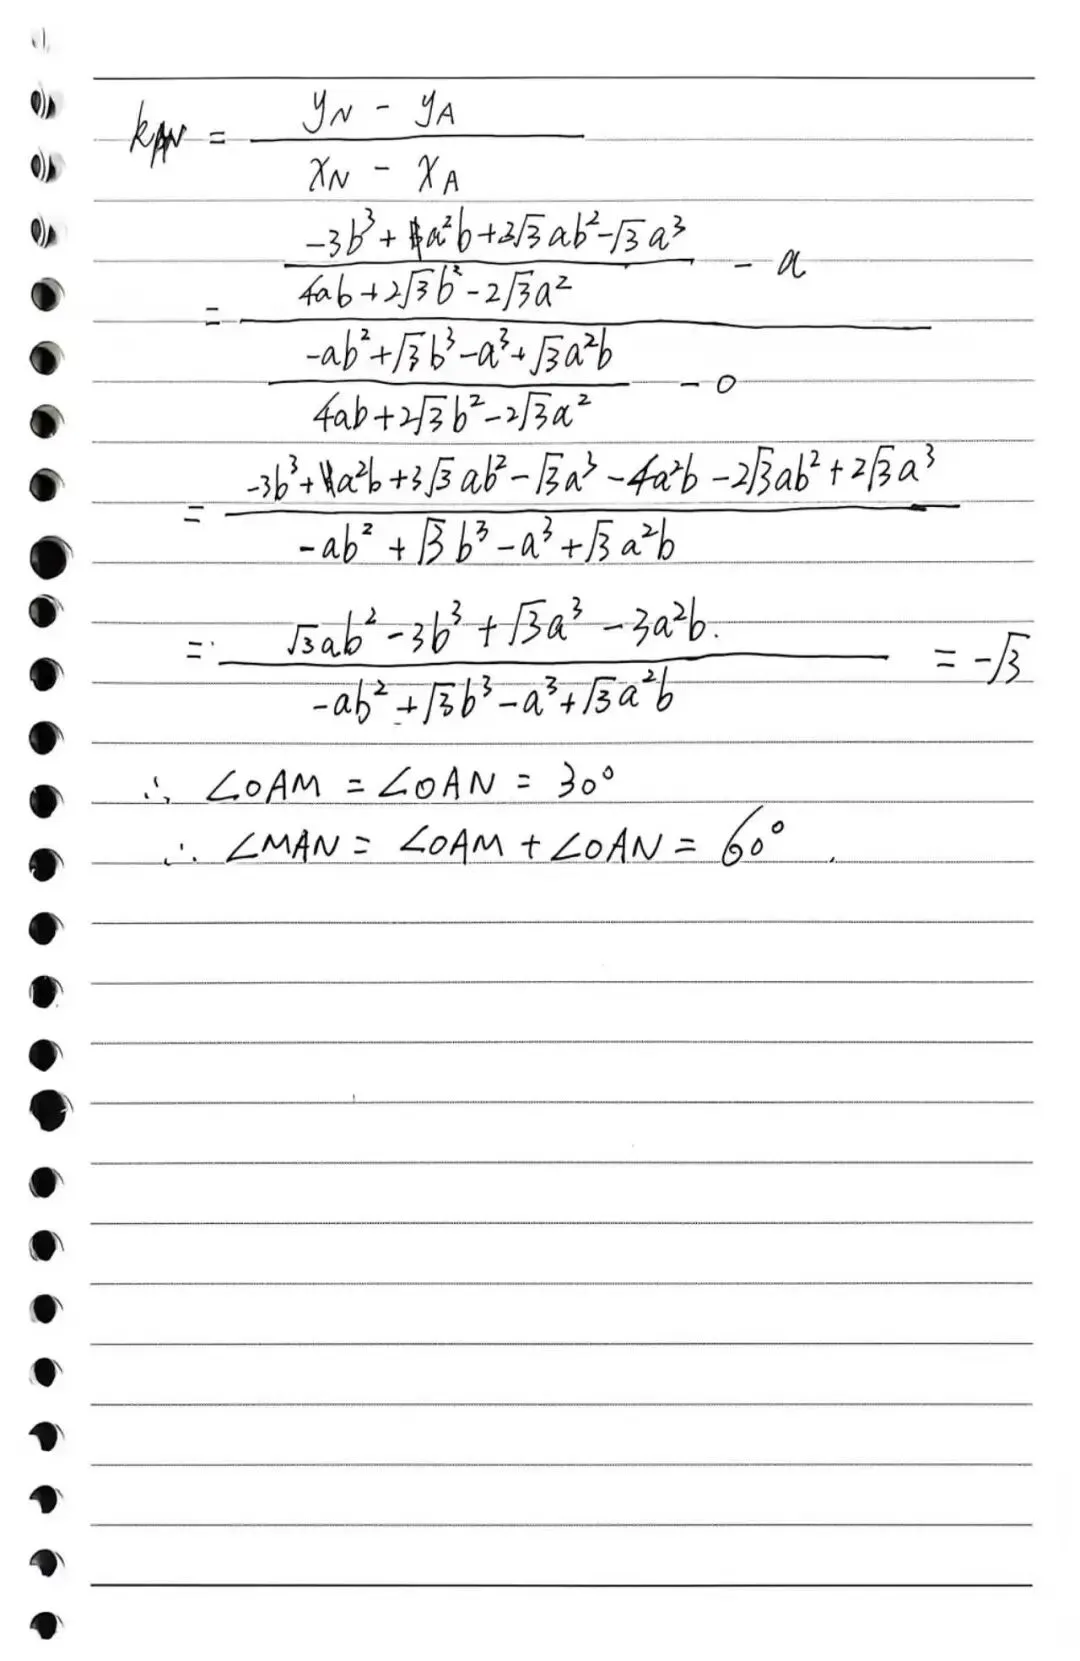 k_AN = (y_N - y_A) / (x_N - x_A)
= ((-3b³ + a²b + 3√3ab² - √3a³) / (4ab + 2√3b² - 2√3a²) - a) / ((-ab² + √3b³ - a³ + √3a²b) / (4ab + 2√3b² - 2√3a²) - 0)
= (-3b³ + a²b + 3√3ab² - √3a³ - 4a²b - 2√3ab² + 2√3a³) / (-ab² + √3b³ - a³ + √3a²b)
= (√3ab² - 3b³ + √3a³ - 3a²b.) / (-ab² + √3b³ - a³ + √3a²b) = -√3
∴ ∠OAM = ∠OAN = 30°
∴ ∠MAN = ∠OAM + ∠OAN = 60°.